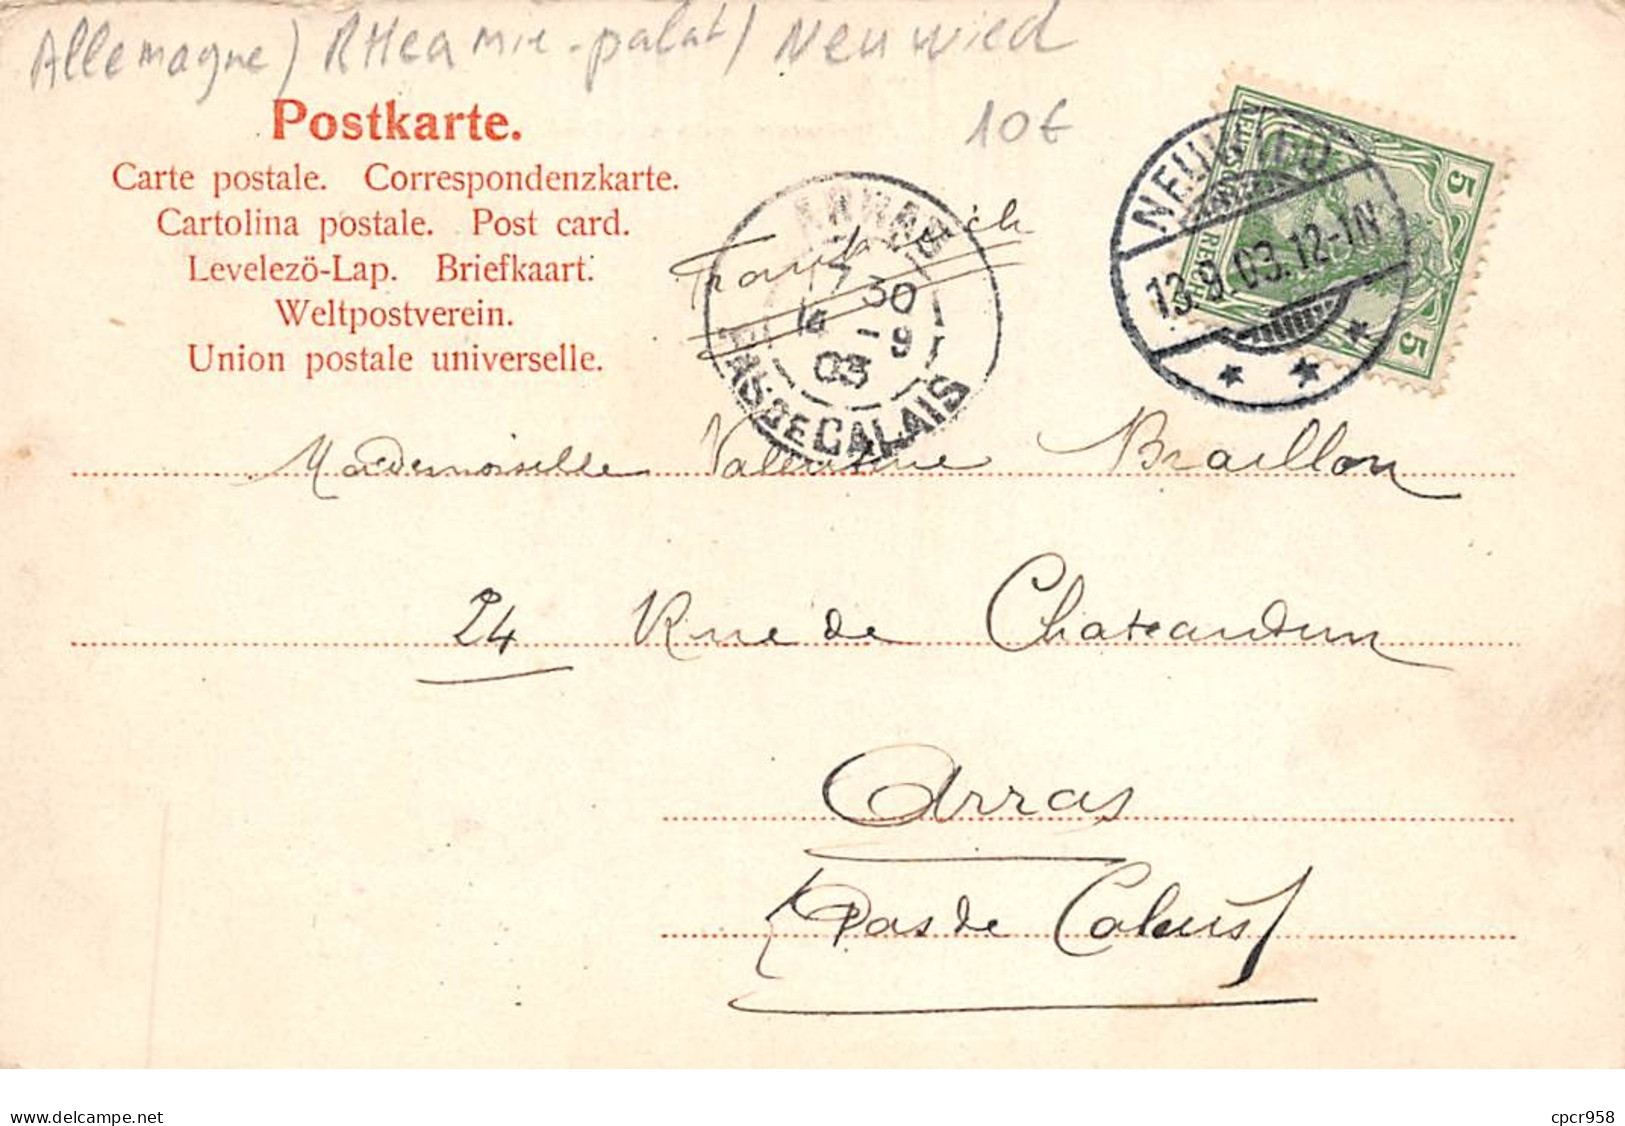 Allemagne) RHeamie-palat/ Neuwied
10€
Postkarte.
Carte postale. Correspondenzkarte.
Cartolina postale. Post card.
Levelező-Lap. Briefkaart.
Weltpostverein.
Union postale universelle.
Frankreich
ARRAS
17 30
14 -9
03
PAS-DE-CALAIS
NEUWIED
13.9.03.12-1N
5
5
Mademoiselle Valentine Braillon
24 Rue de Chateaudun
Arras
(Pas de Calais)
delcampe.net
cpcr958